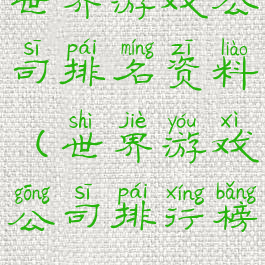 世界游戏公
sī pái míng zī liào
司排名资料
shì jiè yóu xì
（世界游戏
gōng sī pái xíng bǎng
公司排行榜